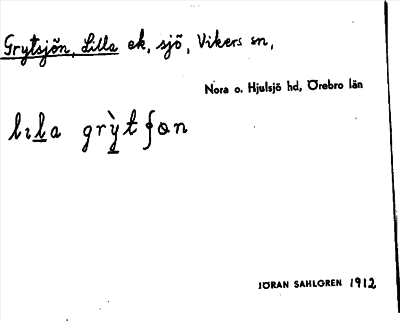 Grytsjön, Lilla ek, sjö, Vikers sn,
Nora o. Hjulsjö hd, Örebro län
lıl̲a grỳ̲tʃɷn
JÖRAN SAHLGREN 1912